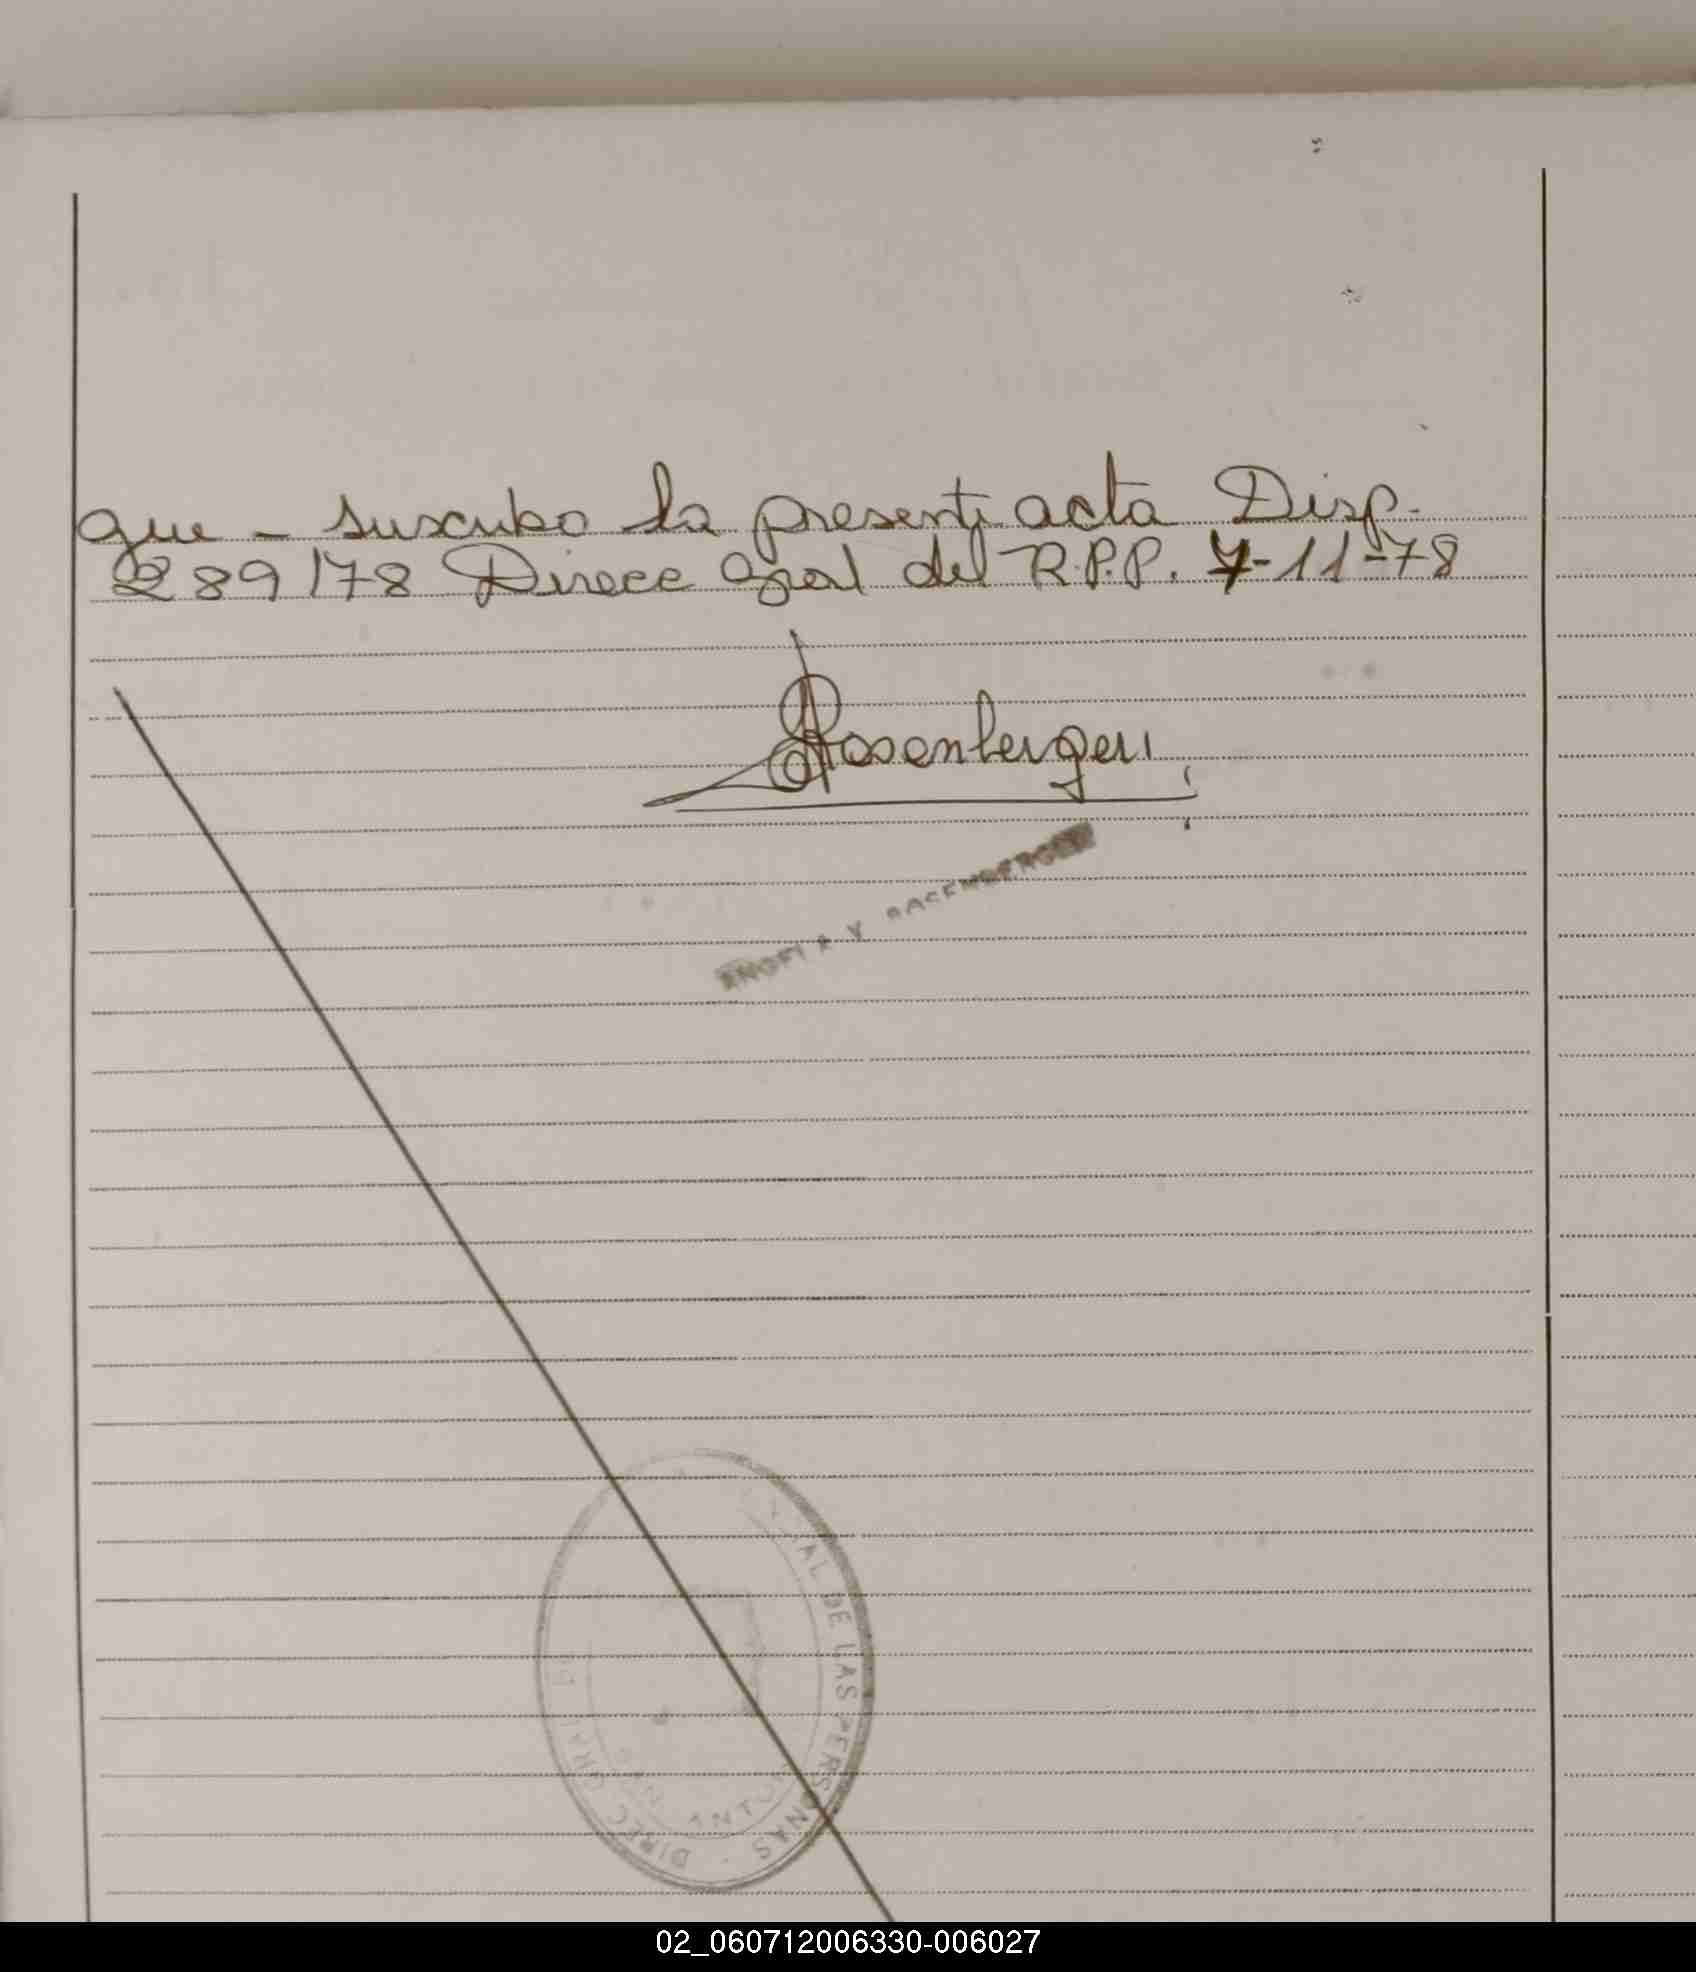 que - suscribo la presente acta Disp.
289/78 Direcc Gral del R.P.P. 7-11-78
Rosenberger
ROSENBERGER
DE LAS PERSONAS - DIREC GRAL
02_060712006330-006027